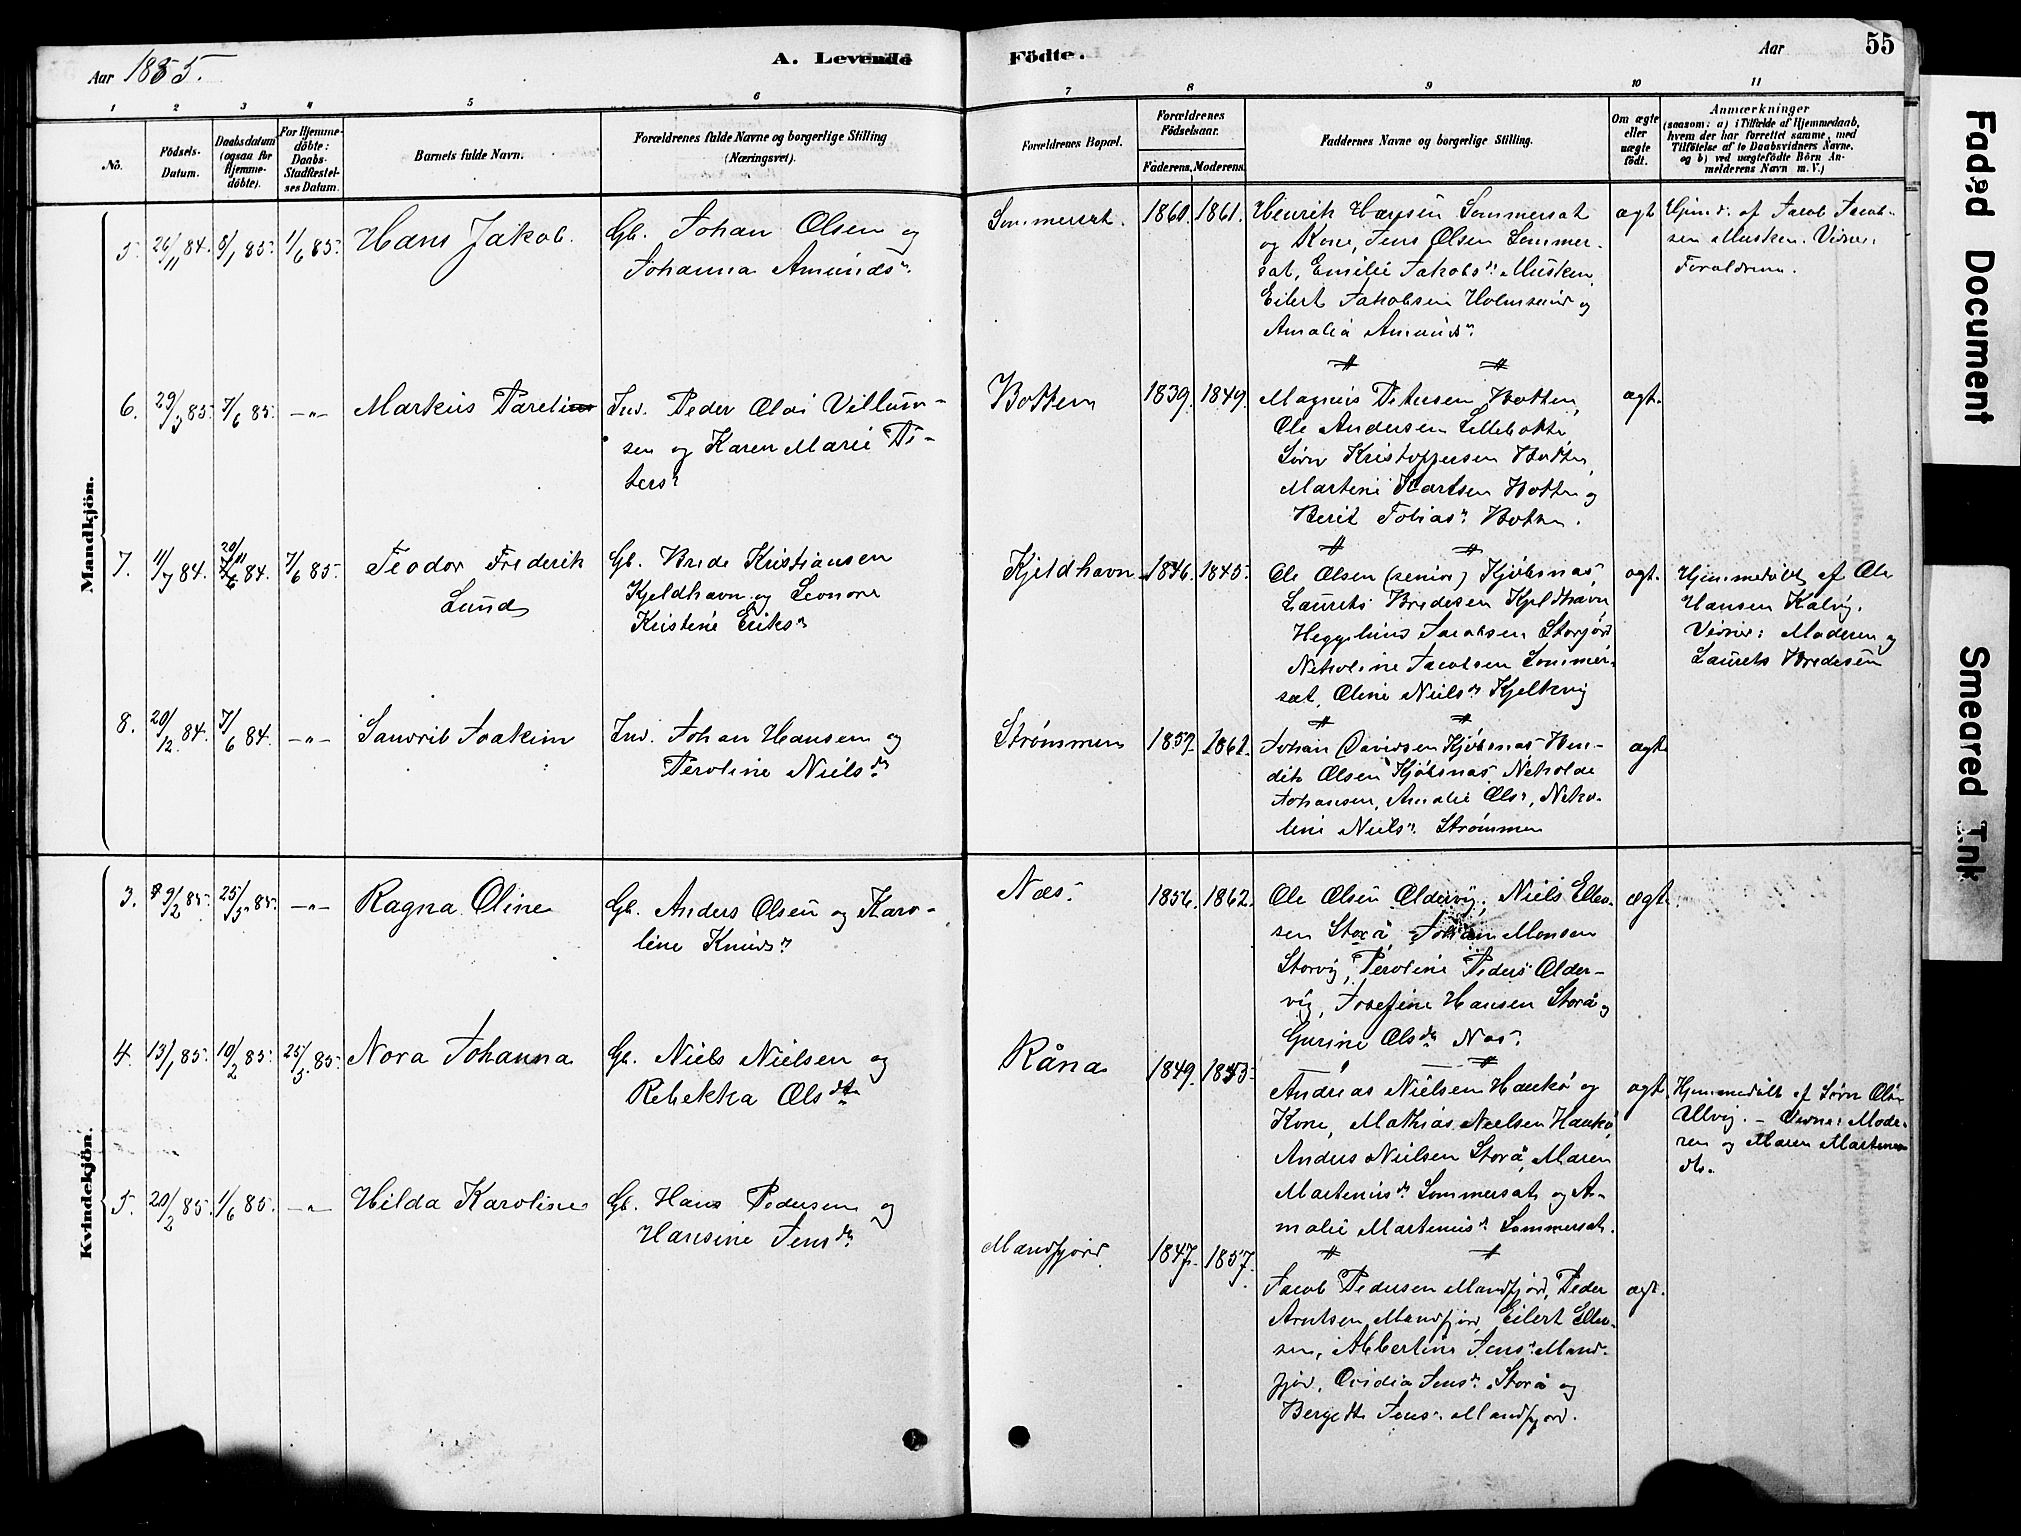 Aar 1885.
A. Levende
Födte.
Aar
55
1 2 3 4 5 6 7 8 9 10 11
No.
Födsels-
Datum.
Daabsdatum
(ogsaa for
Hjemme-
döbte).
For Hjemme-
döbte:
Daabs-
Stadfæstel-
ses Datum.
Barnets fulde Navn.
Forældrenes fulde Navne og borgerlige Stilling
(Næringsvei).
Forældrenes Bopæl.
Forældrenes
Födselsaar.
Faderens. Moderens.
Faddernes Navne og borgerlige Stilling.
Om ægte
eller
uægte
födt.
Anmærkninger
(saasom: a) i Tilfælde af Hjemmedaab,
hvem der har forrettet samme, med
Tilföielse af to Daabsvidners Navne,
og b) ved uægtefödte Börn An-
melderens Navn m. V.)
Mandkjön.
5. 26/11 84. 8/1 85. 1/6 85. Hans Jakob.
Gb. Johan Olsen og
Johanna Amundsdr.
Sommersæt. 1860. 1861.
Henrik Hansen Sommersæt
og Kone, Jens Olsen Sommer-
sæt, Emilie Jakobsdr. Musken,
Eilert Jakobsen Holmsund og
Amalia Amundsdr.
ægt
Hjmd. af Jacob Jacob-
sen Musken. Vidner:
Forældrene.
6. 29/3 85. 7/6 85. -"- Markus Parelius
Inv. Peder Olai Villum-
sen og Karen Marie Pe-
tersdr
Botten 1839. 1849.
Magnus Petersen Botten,
Ole Andersen Lillebotten
Sören Kristoffersen Botten,
Martene Hartsen Botten og
Berit Tobiasdr. Botten.
ægt.
7. 11/7 84. 20/11 84. 7/6 85. Teodor Frederik
Lund
Gb. Brede Kristiansen
Kjeldhavn og Leonore
Kristine Eriksdr
Kjeldhavn 1846. 1845.
Ole Olsen (senior) Kjøbsnæs
Laurets Bredesen Kjeldhavn
Heggelius Jacobsen Storjord
Nekoline Jacobsen Sommer-
sæt, Oline Nielsdr Kjelkvig
ægt.
Hjemmedöbt af Ole
Hansen Kalvig.
Vidner: Moderen og
Laurets Bredesen
8. 20/12 84. 7/6 84. -"- Laurib Joakim
Inv. Johan Hansen og
Peroline Nielsdr
Strømmen 1857. 1862.
Johan Davidsen Kjøbsnæs Ben-
dik Olsen Kjøbsnæs Nekolde
Johansen, Amalie Olsdr, Neko-
line Nielsdr. Strømmen
ægt
Kvindekjön.
3. 9/2 85. 25/5 85. -"- Ragna Oline
Gb. Anders Olsen og Karo-
line Knudsdr
Næs. 1856. 1862.
Ole Olsen Oldervig, Niels Ellev-
sen Storå, Johan Monsen
Storvig, Peroline Peders Older-
vig, Josefine Hansen Storå og
Gurine Olsdr Næs.
ægt
4. 13/1 85. 10/2 85. 25/5 85. Nora Johanna
Gb. Niels Nielsen og
Rebekka Olsdtr
Råna 1849. 1843.
Andreas Nielsen Haukø og
Kone, Mathias Nielsen Haukø
Anders Nielsen Storå, Maren
Martenusdr Sommersæt og A-
malie Martenusdr Sommersæt.
ægt
Hjemmedöbt af Sörn Olsen
Ulvig. - Vidner: Mode-
ren og Maren Martenus-
dtr.
5. 20/2 85. 1/6 85. -"- Hilda Karoline
Gb. Hans Pedersen og
Hansine Jensdr
Mandfjord 1847. 1857.
Jacob Pedersen Mandfjord, Peder
Arntsen Mandfjord, Eilert Ellev-
sen, Albertine Jensdr. Mand-
fjor, Ovidia Jensdr. Storå og
Bergette Jensdr. Mandfjord.
ægt.
Faded Document
Smeared Ink